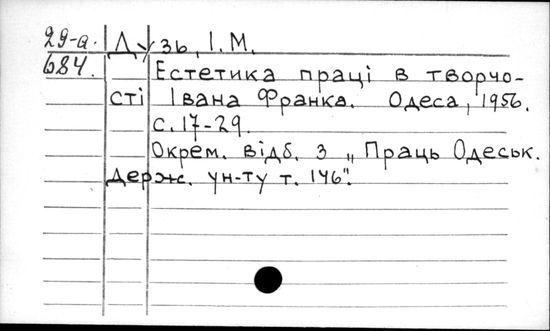 29-а.
684.
Дузь, І.М.
Естетика праці в творчо-
сті Івана Франка. Одеса, 1956.
с.17-29.
Окрем. відб. з „Праць Одеськ.
держ. ун-ту т. 146".